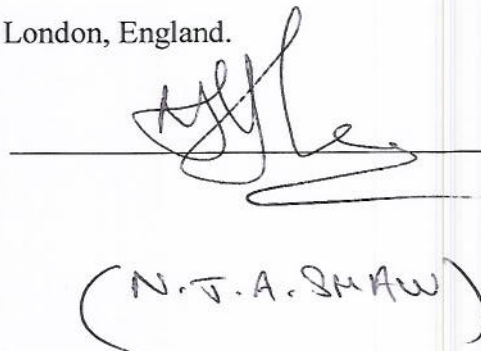 London, England.
(N.J.A. SHAW)